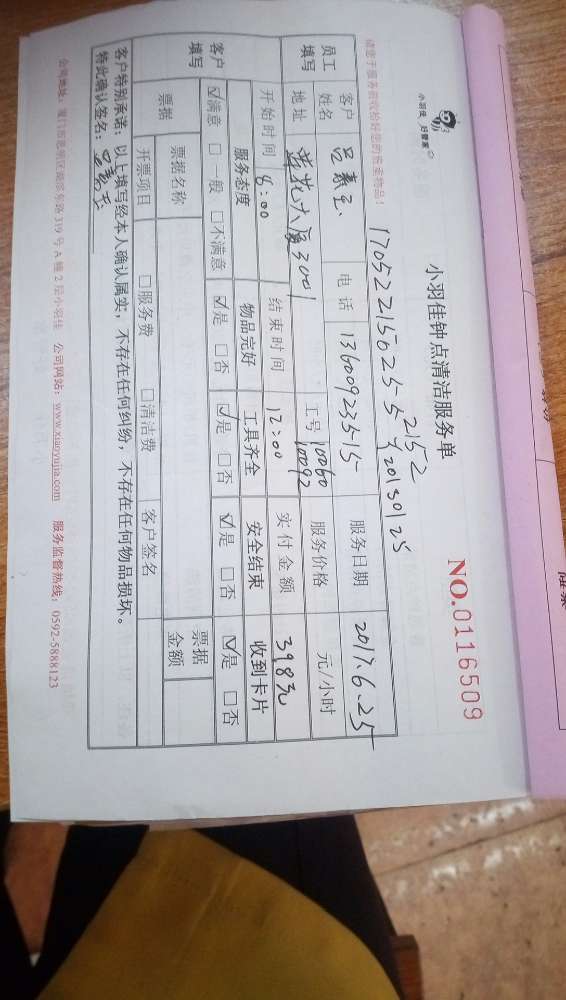 小羽佳 好管家
小羽佳钟点清洁服务单
NO.0116509
2152
请您于服务前收拾好您的贵重物品！
员工填写
客户姓名
电话 13600923515
服务日期 2017.6.25
地址 莲花大厦3001
工号 10060
10092
服务价格 元/小时
客户填写
开始时间 8:00
结束时间 12:00
实付金额 398元
服务态度 物品完好 工具齐全 安全结束 收到卡片
☑满意 □一般 □不满意 ☑是 □否 ☑是 □否 ☑是 □否 ☑是 □否
票据 票据名称 票据金额
开票项目 □服务费 □清洁费 客户签名
客户特别承诺：以上填写经本人确认属实，不存在任何纠纷，不存在任何物品损坏。
特此确认签名：
公司地址：厦门市思明区湖滨东路319号A幢2层小羽佳 公司网站：www.xiaoyujia.com 服务监督热线：0592-5888123